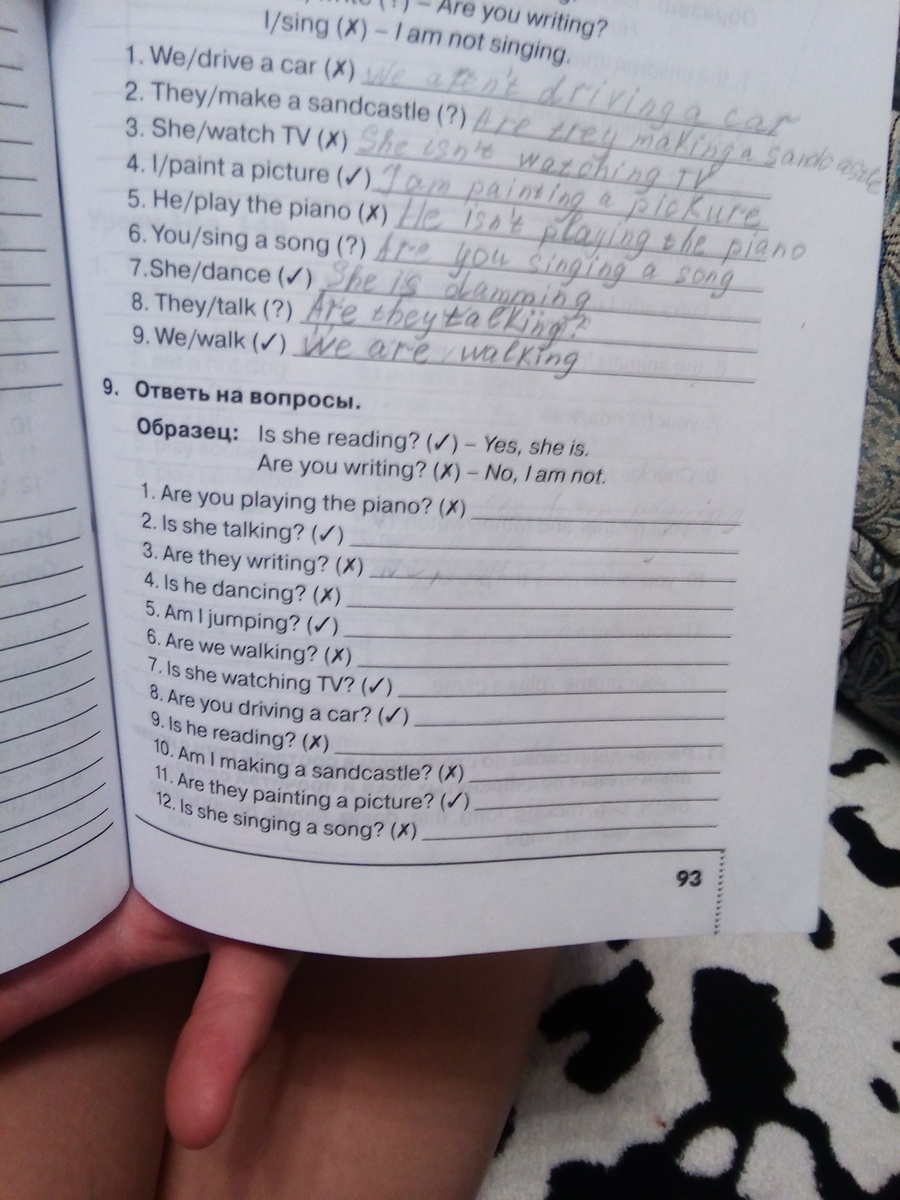 (?) – Are you writing?
I/sing (✗) – I am not singing.
1. We/drive a car (✗) We aren't driving a car
2. They/make a sandcastle (?) Are they making a sandcastle
3. She/watch TV (✗) She isn't watching TV
4. I/paint a picture (✓) I am painting a pickure
5. He/play the piano (✗) He isn't playing the piano
6. You/sing a song (?) Are you singing a song
7.She/dance (✓) She is damming
8. They/talk (?) Are they talking?
9. We/walk (✓) We are walking
9. Ответь на вопросы.
Образец: Is she reading? (✓) – Yes, she is.
Are you writing? (✗) – No, I am not.
1. Are you playing the piano? (✗)
2. Is she talking? (✓)
3. Are they writing? (✗)
4. Is he dancing? (✗)
5. Am I jumping? (✓)
6. Are we walking? (✗)
7. Is she watching TV? (✓)
8. Are you driving a car? (✓)
9. Is he reading? (✗)
10. Am I making a sandcastle? (✗)
11. Are they painting a picture? (✓)
12. Is she singing a song? (✗)
93